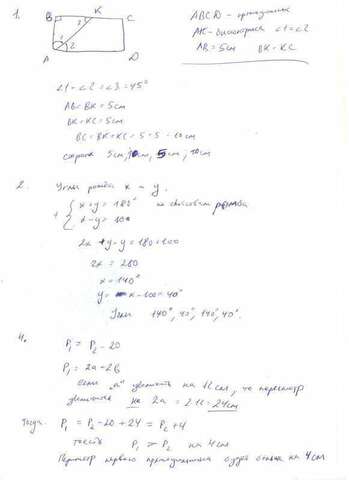 1.
B K C
3
1
2
A D
ABCD - прямоугольник
AK - биссектриса ∠1=∠2
AB = 5 см BK = KC
∠1 = ∠2 = ∠3 = 45°
AB = BK = 5 см
BK = KC = 5 см
BC = BK + KC = 5 + 5 = 10 см
стороны 5 см, 10 см, 5 см, 10 см
2. Углы ромба x и y.
x + y = 180° по свойствам ромба
x - y = 100
2x + y - y = 180 + 100
2x = 280
x = 140°
y = x - 100 = 40°
Углы 140°, 40°, 140°, 40°.
4.
P₁ = P₂ - 20
P₁ = 2a + 2b
если "a" увеличить на 12 см, то периметр
увеличится на 2a = 2·12 = 24 см
Тогда P₁ = P₂ - 20 + 24 = P₂ + 4
то есть P₁ > P₂ на 4 см
Периметр первого прямоугольника будет больше на 4 см